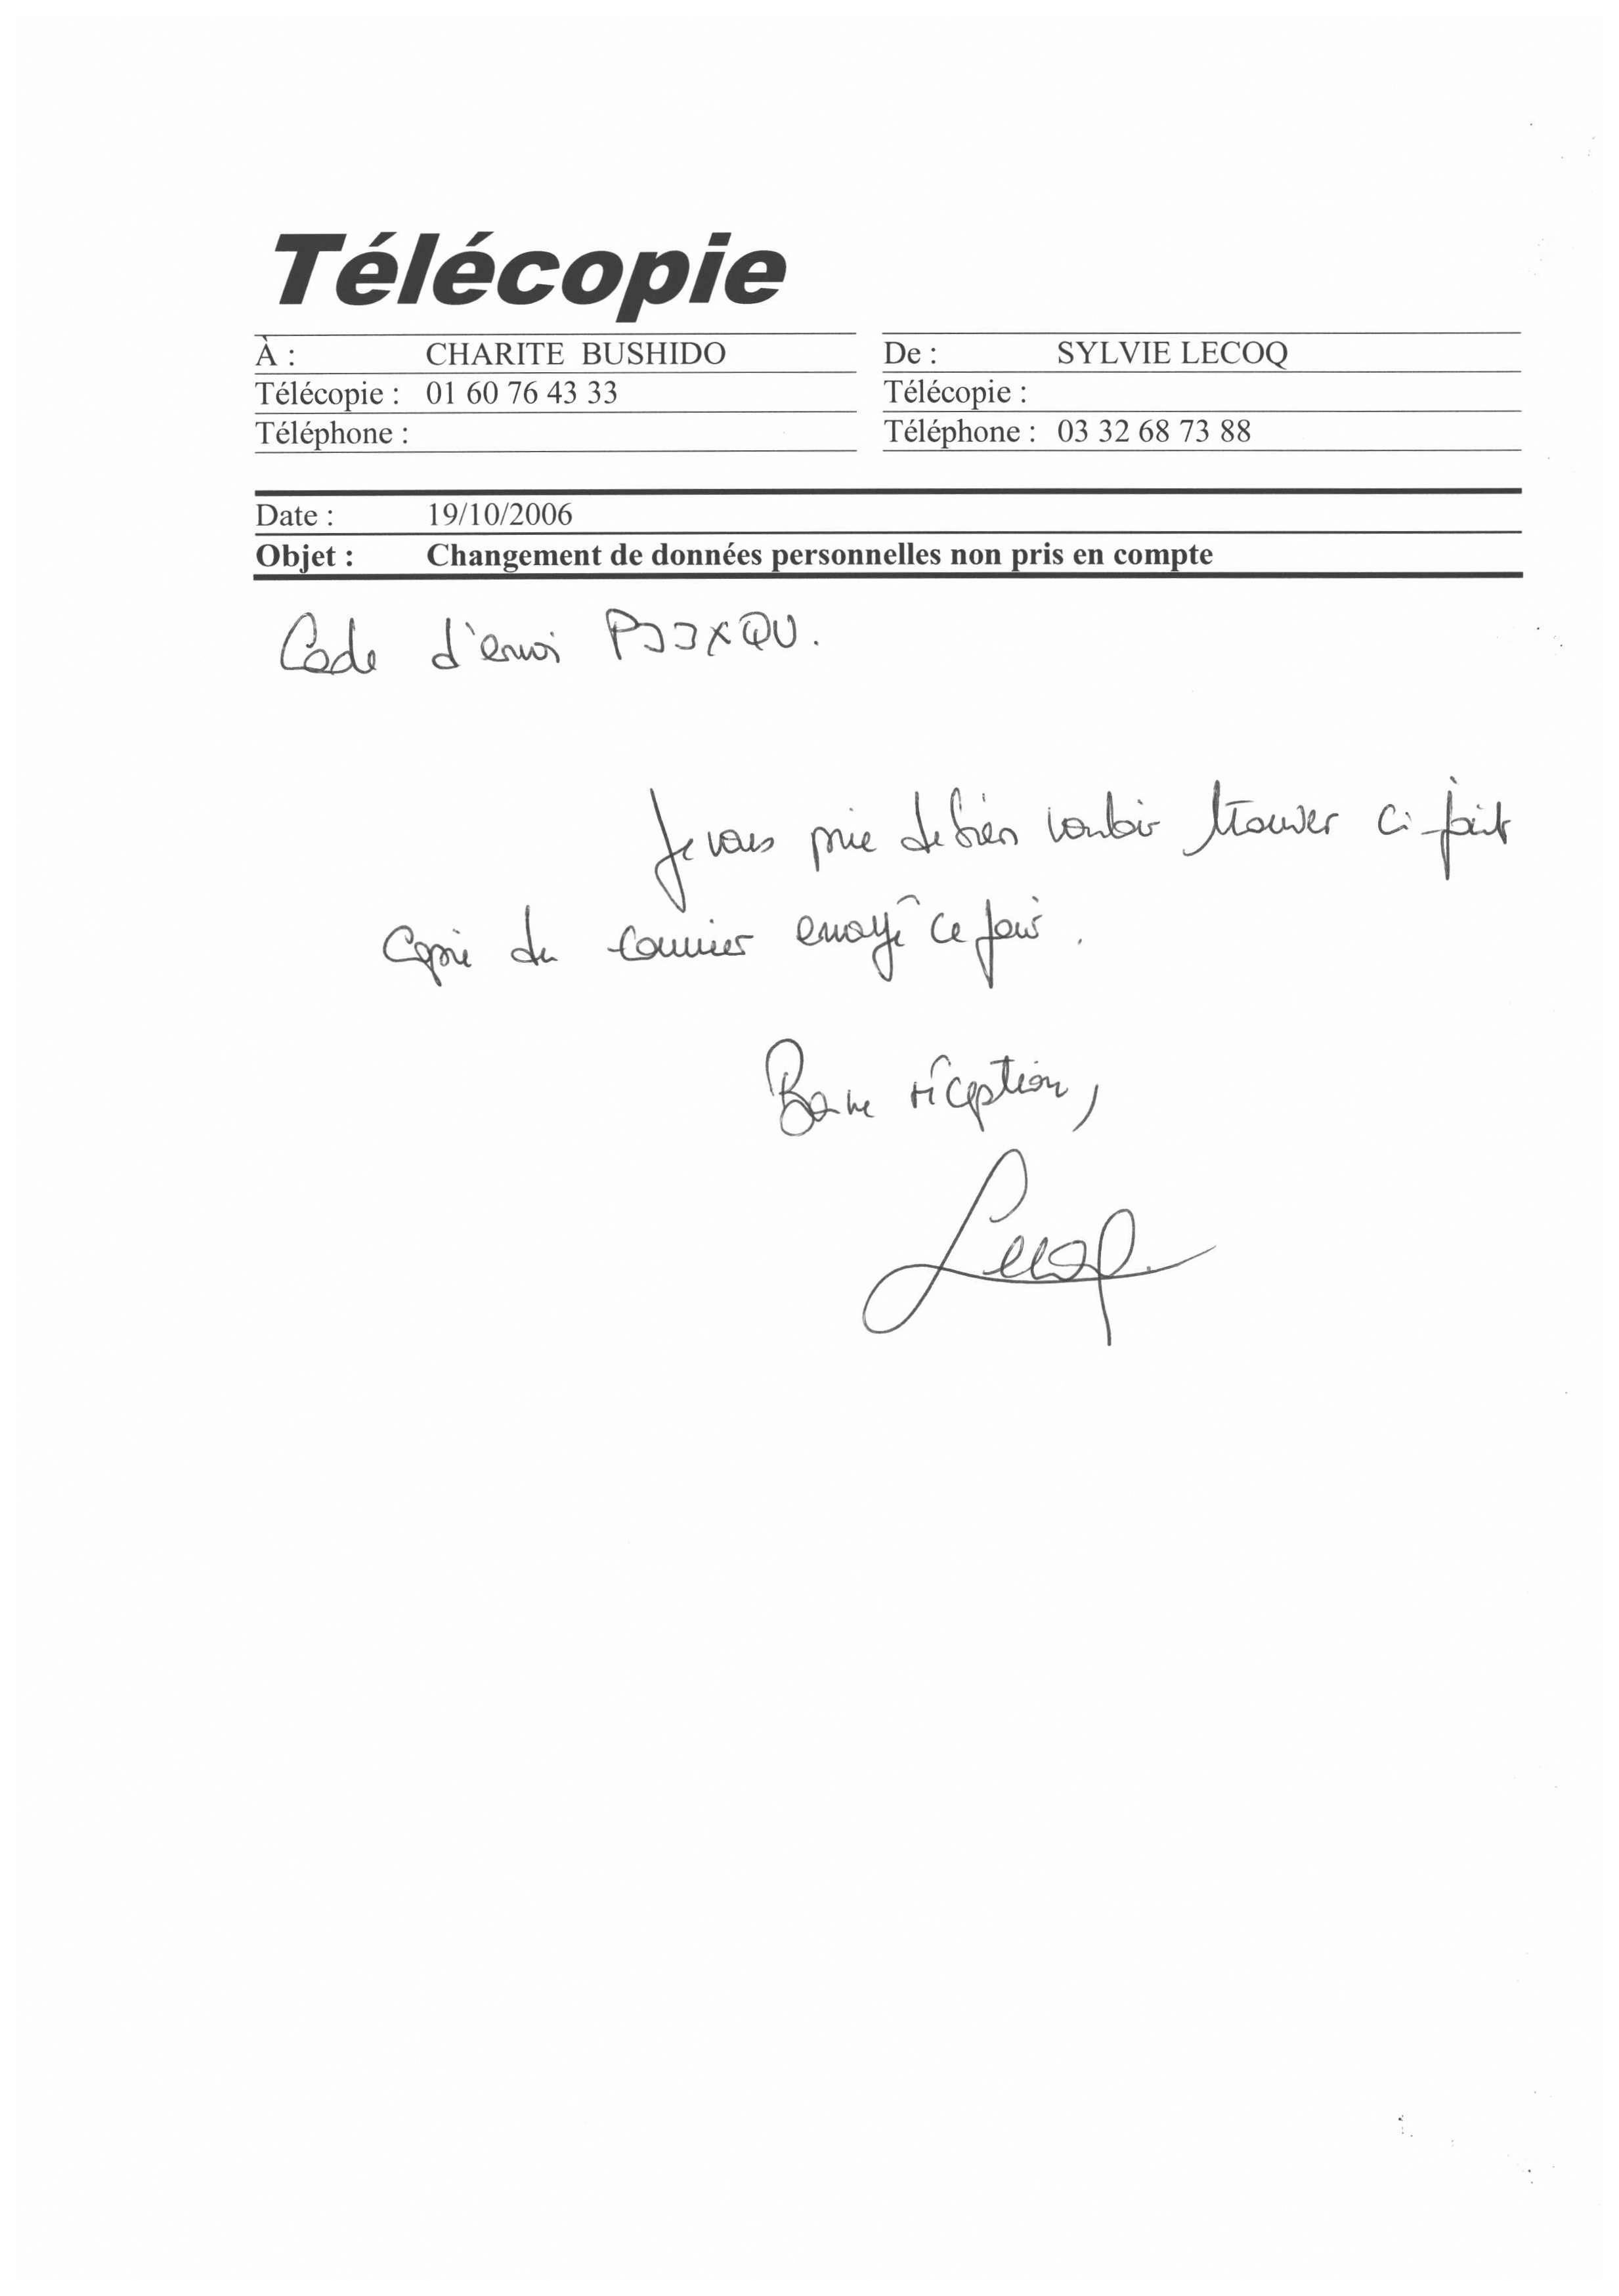 Télécopie
À : CHARITE BUSHIDO De : SYLVIE LECOQ
Télécopie : 01 60 76 43 33 Télécopie :
Téléphone : Téléphone : 03 32 68 73 88
Date : 19/10/2006
Objet : Changement de données personnelles non pris en compte
Code d'envoi PJJXQU.
Je vous prie de bien vouloir trouver ci-joint
Copie du courrier envoyé ce jour.
Bonne réception,
Lecoq